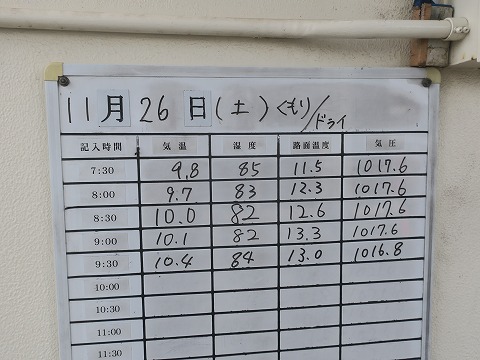 11月26日(土)くもり/ドライ
記入時間 気温 湿度 路面温度 気圧
7:30 9.8 85 11.5 1017.6
8:00 9.7 83 12.3 1017.6
8:30 10.0 82 12.6 1017.6
9:00 10.1 82 13.3 1017.6
9:30 10.4 84 13.0 1016.8
10:00
10:30
11:00
11:30